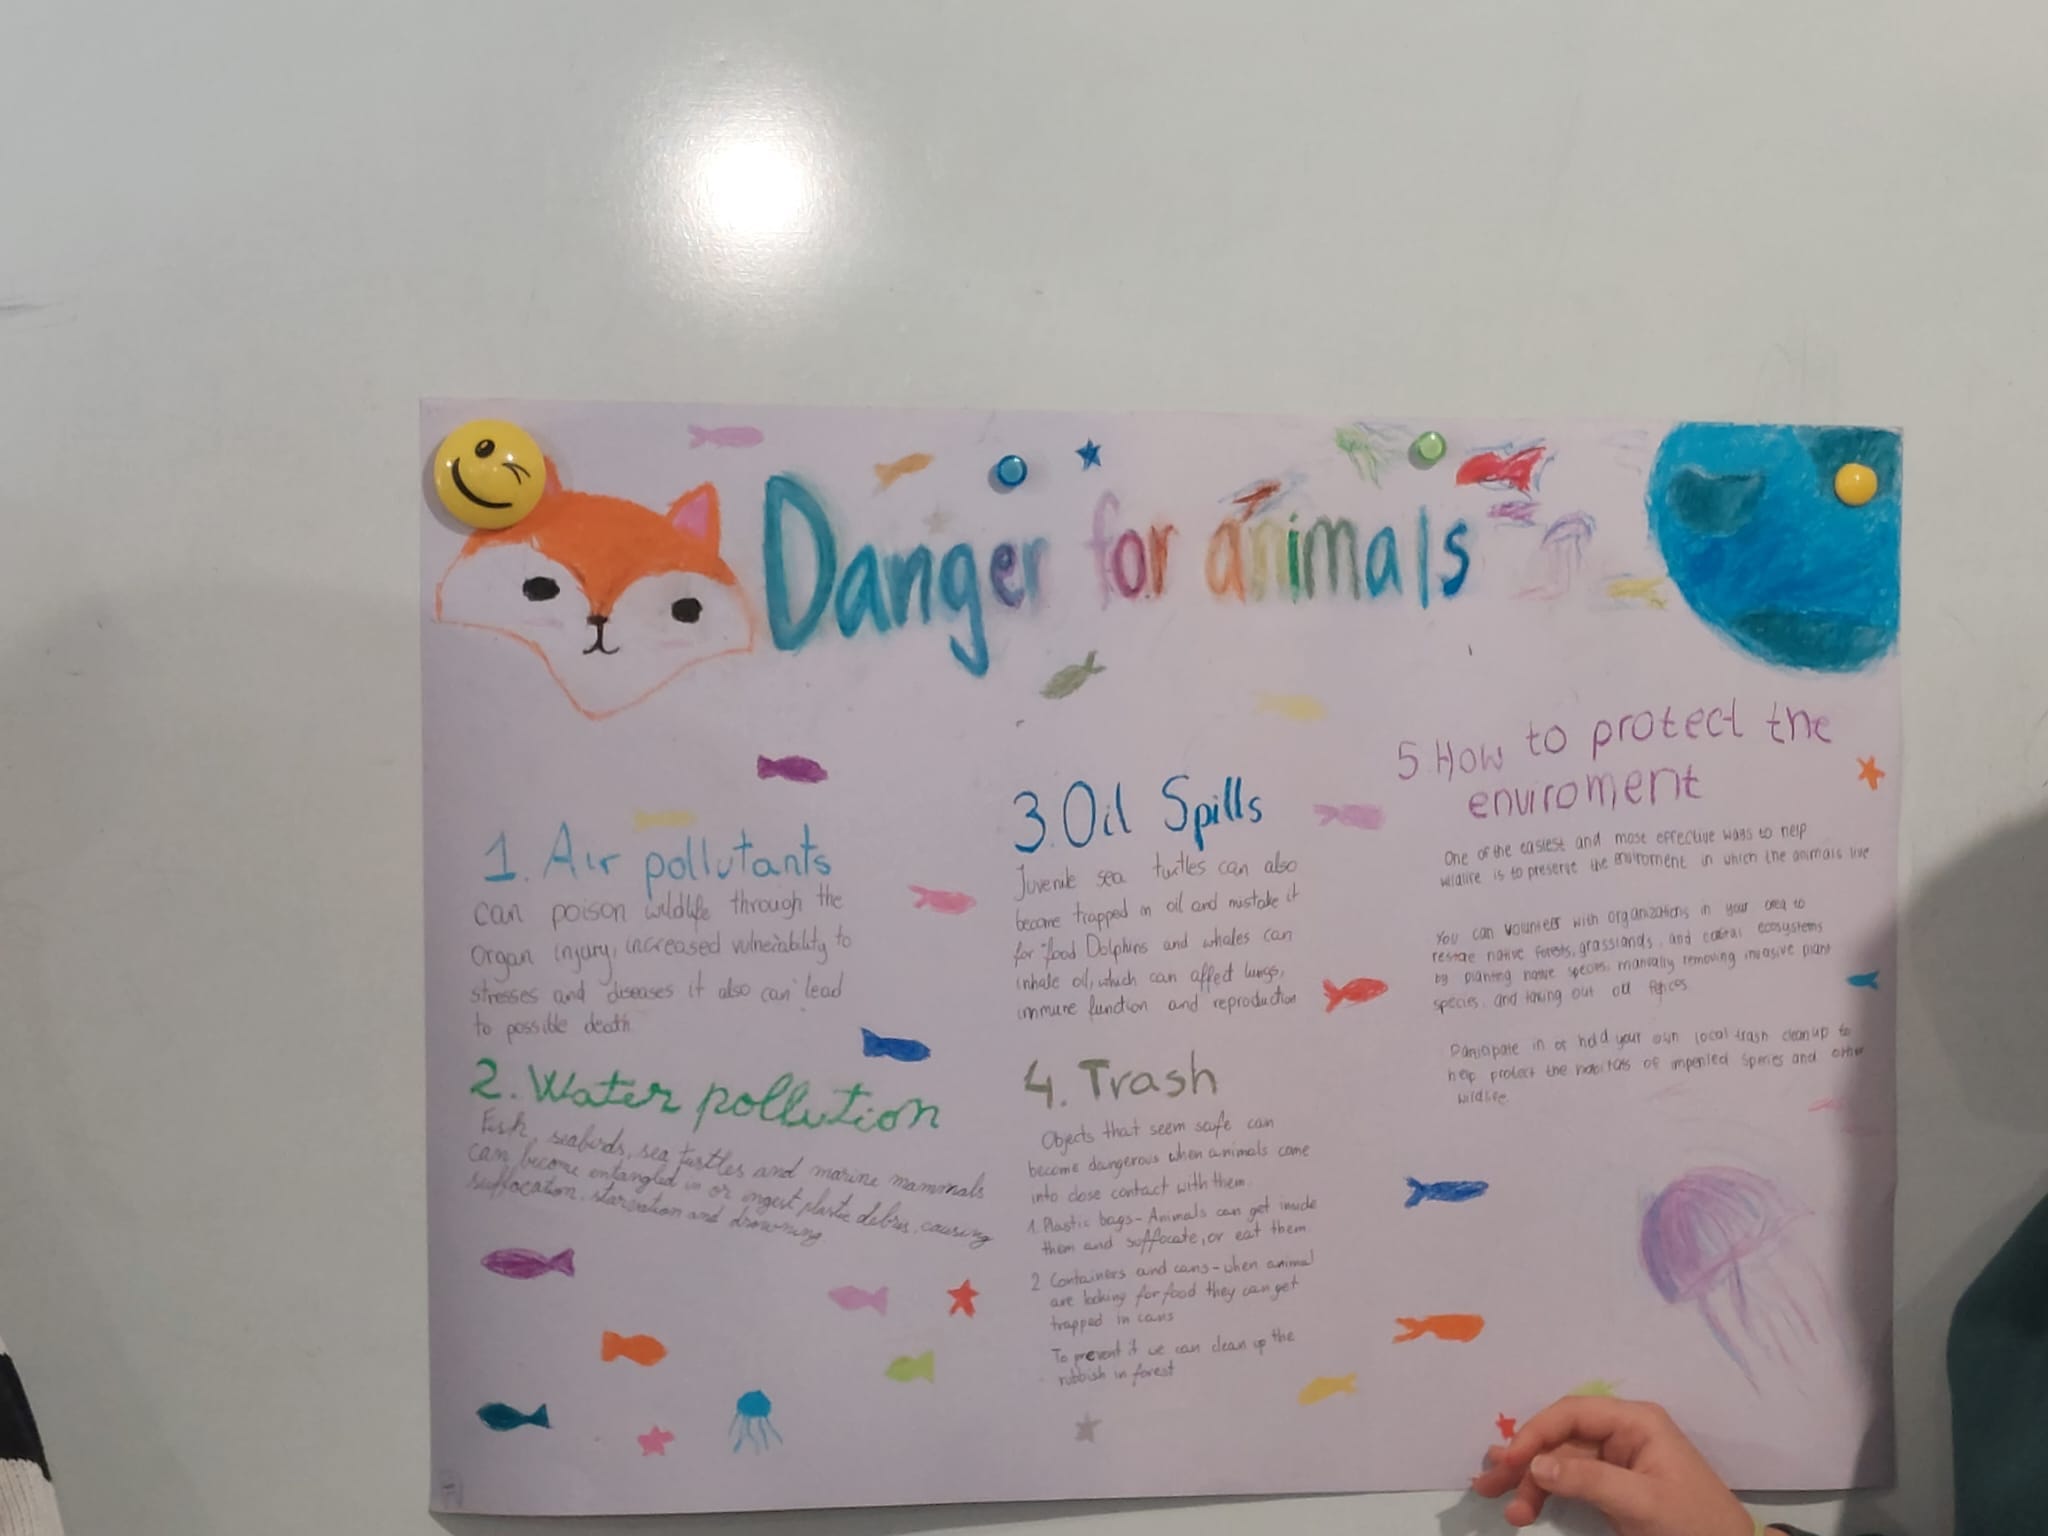 Danger for animals
1. Air pollutants
can poison wildlife through the
organ injury, increased vulnerability to
stresses and diseases it also can lead
to possible death
2. Water pollution
Fish, seabirds, sea turtles and marine mammals
can become entangled in or ingest plastic debris, causing
suffocation, starvation and drowning
3. Oil Spills
Juvenile sea turtles can also
become trapped in oil and mistake it
for food Dolphins and whales can
inhale oil, which can affect lungs,
immune function and reproduction
4. Trash
Objects that seem safe can
become dangerous when animals come
into close contact with them.
1. Plastic bags - Animals can get inside
them and suffocate, or eat them.
2 Containers and cans - when animal
are looking for food they can get
trapped in cans
To prevent it we can clean up the
rubbish in forest
5 How to protect the
enviroment
One of the easiest and most effective ways to help
wildlife is to preserve the enviroment in which the animals live
You can volunteer with organizations in your area to
restore native forests, grasslands, and coastal ecosystems
by planting native species, manually removing invasive plant
species, and taking out old fences.
Participate in or hold your own local trash cleanup to
help protect the habitats of imperiled species and other
wildlife.